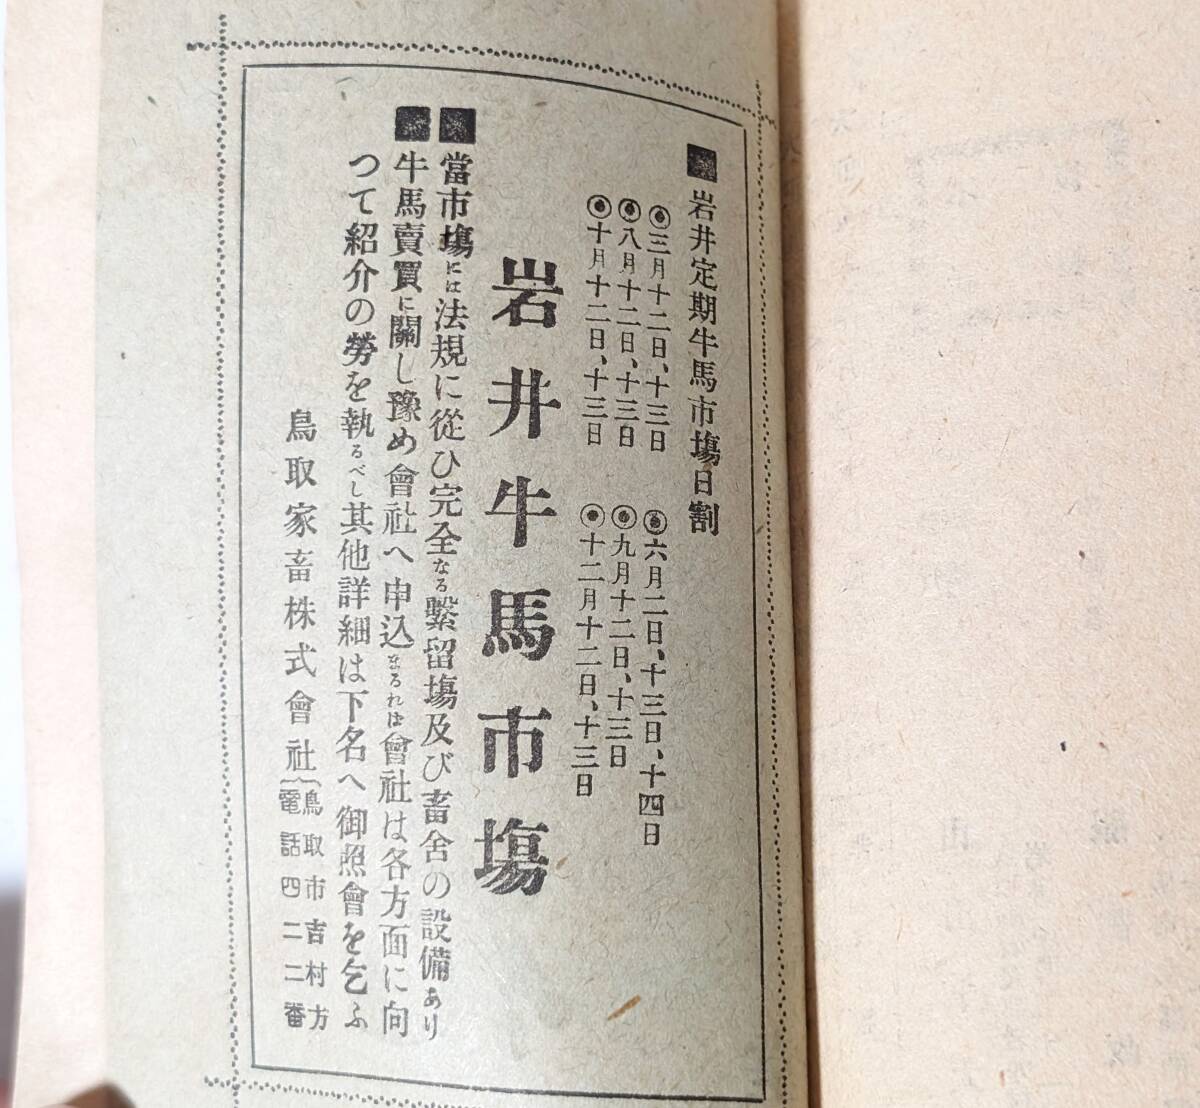 ■岩井定期牛馬市塲日割
◉三月十二日、十三日
◉六月二日、十三日、十四日
◉八月十二日、十三日
◉九月十二日、十三日
◉十月十二日、十三日
◉十二月十二日、十三日
岩井牛馬市塲
■當市塲には法規に從ひ完全なる繫留塲及び畜舍の設備あり
■牛馬賣買に關し豫め會社へ申込まるれは會社は各方面に向
つて紹介の勞を執るべし其他詳細は下名へ御照會を乞ふ
鳥取家畜株式會社
鳥取市吉村方
電話四二二番